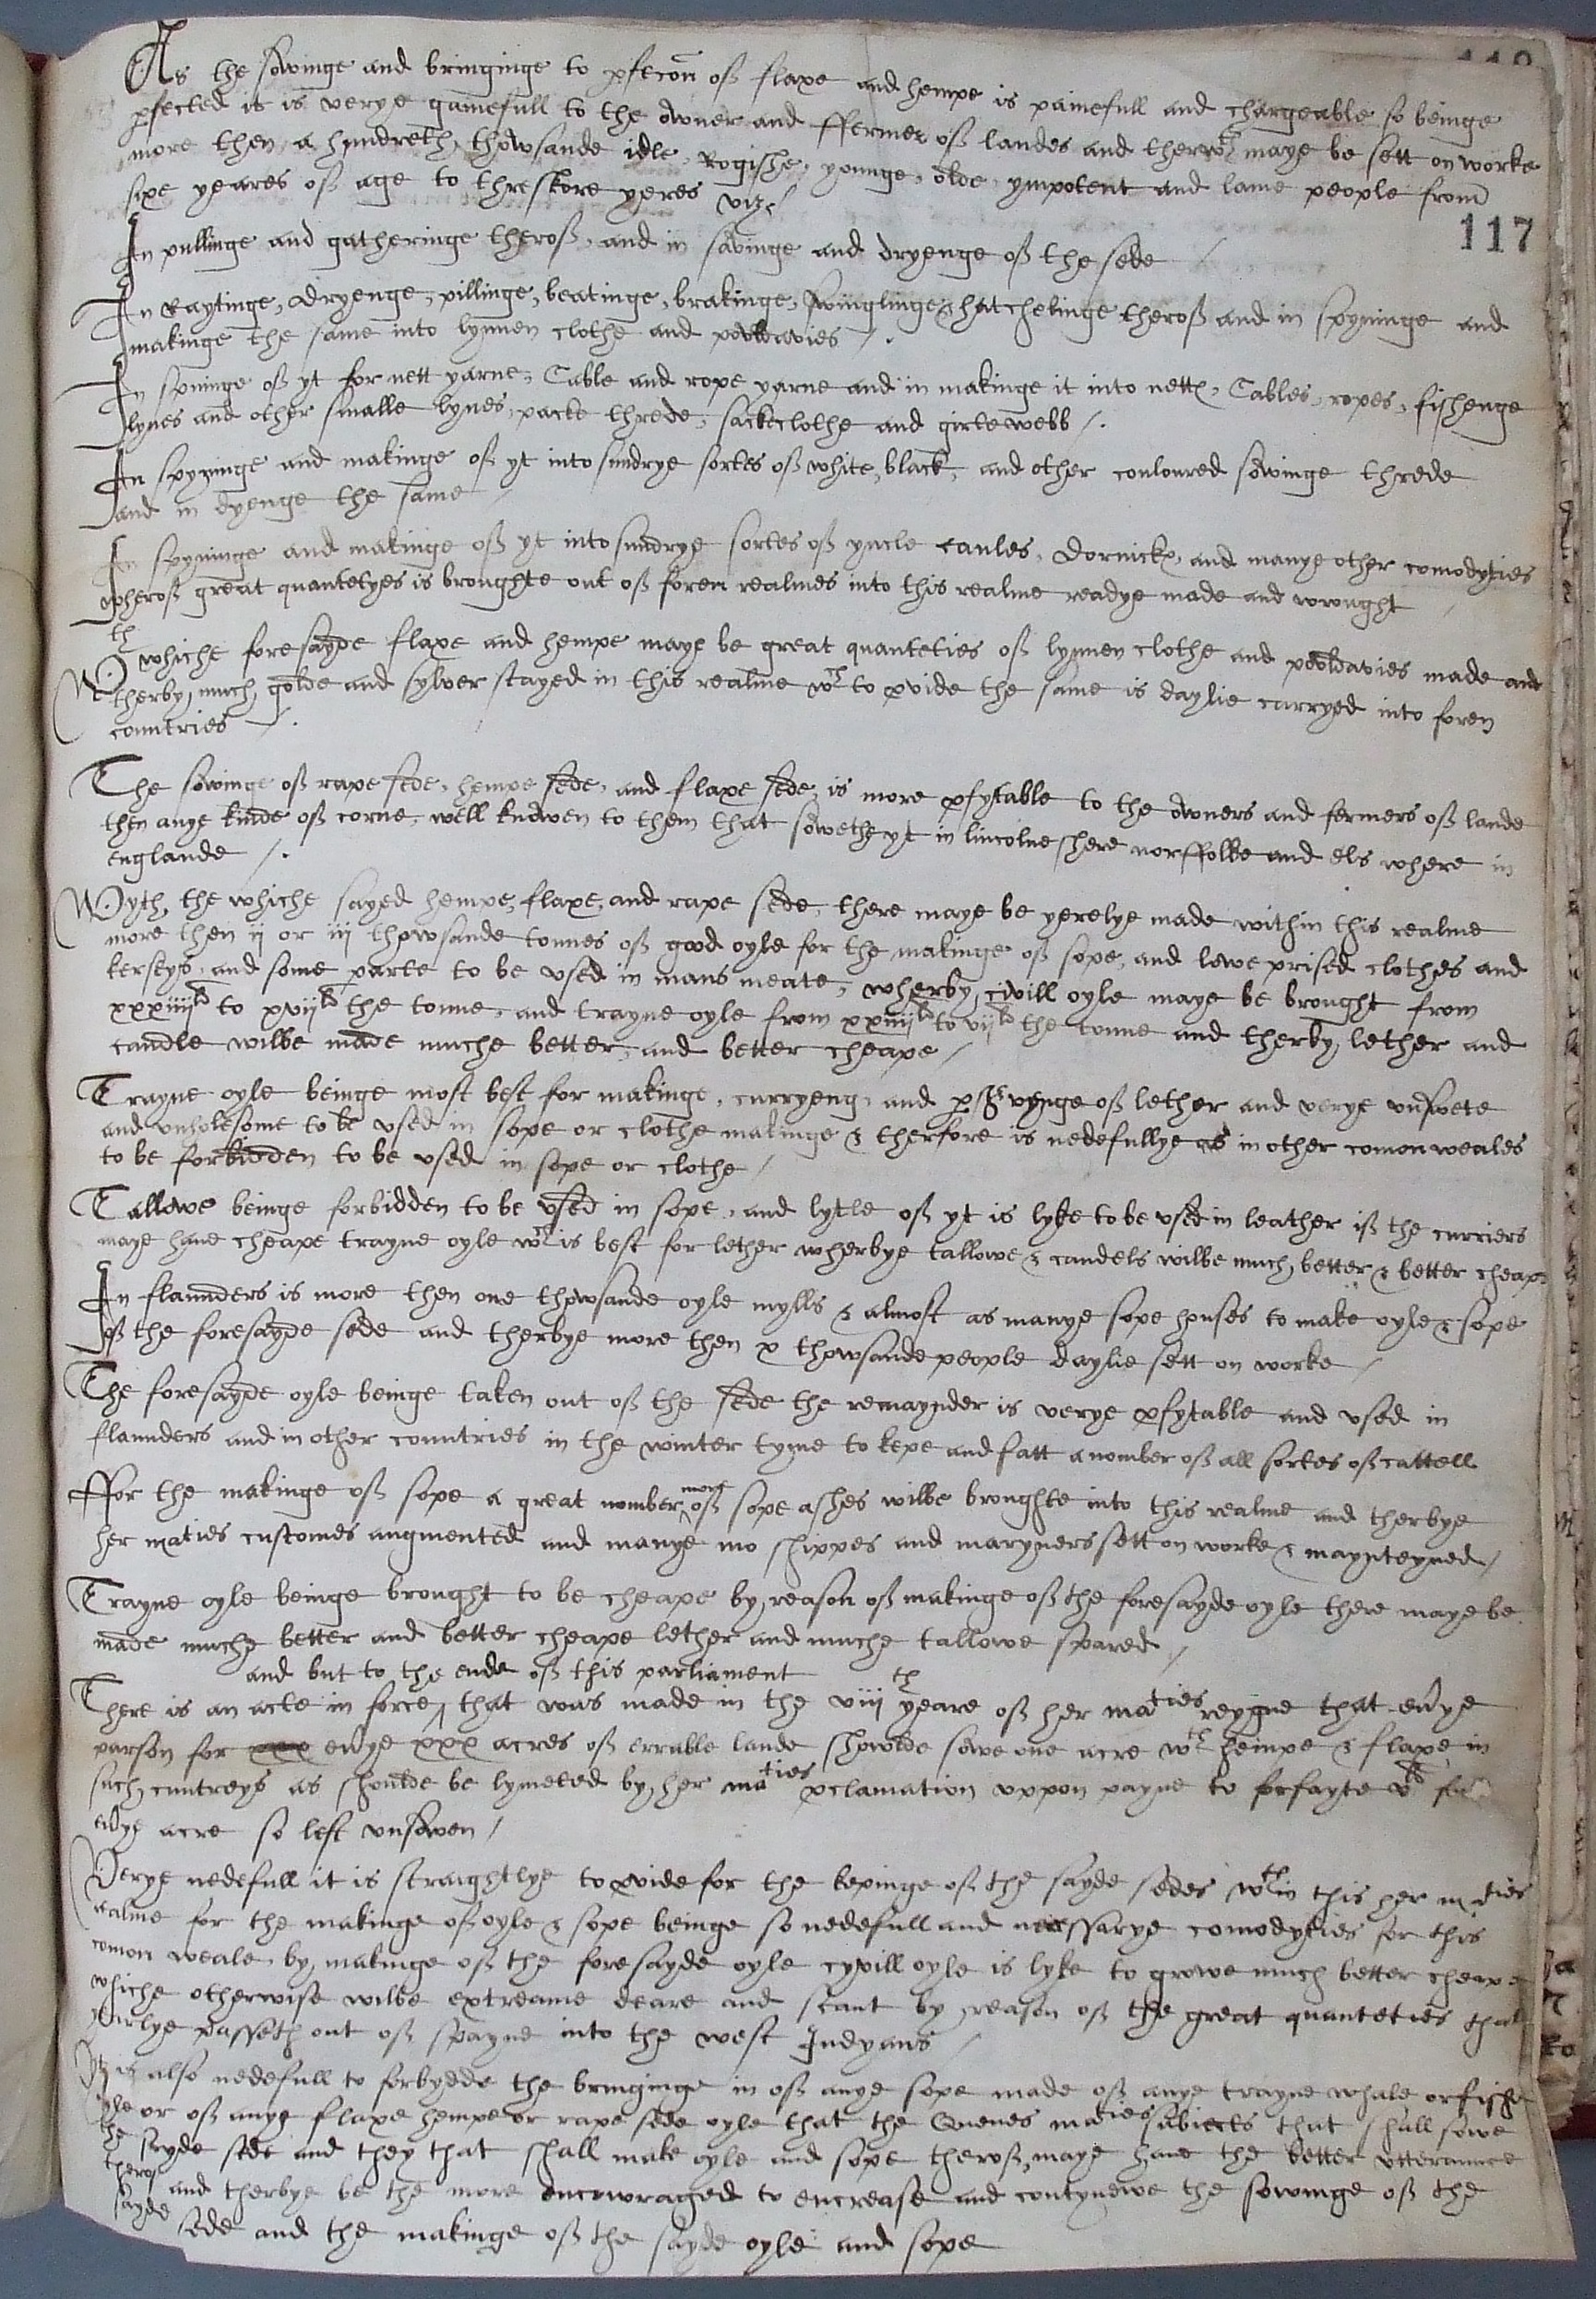 As the sowinge and bringinge to pfecōn off flaxe and hempe is painefull and chargeable so beinge
pfected it is verye gainefull to the owner and ffermer off landes and therwth maye be sett on worke
more then a hundreth thowsande idle, Rogishe, younge, olde, ympotent and lame people from
sixe yeares off age to threskore yeres viz /
117
In pullinge and gatheringe theroff, and in savinge and dryenge off the sede /
In Raytinge, dryenge, pillinge, beatinge, brakinge, swinglinge & hatchelinge theroff and in spyninge and
makinge the same into lynnen clothe and pooldavies /.
In spininge off yt for nett yarne, Cable and rope yarne and in makinge it into nettes, Cables, ropes, fishenge
lynes and other smalle lynes, packe threde, sackeclothe and girtewebb /.
In spyninge and makinge off yt into sundrye sortes off white, black, and other couloured sowinge threde
and in dyenge the same /
In spyninge and makinge off yt into sundrye sortes off yncle caules, Dornickes, and manye other comodyties
wheroff great quantetyes is broughte out off foren realmes into this realme readye made and wrought /
Wth whiche foresayde flaxe and hempe maye be great quanteties off lynnen clothe and pooldavies made and
therby much golde and sylver stayed in this realme wch to pvide the same is daylie carryed into foren
countries /.
The sowinge off rape sede, hempe sede, and flaxe sede is more pfytable to the owners and fermers off lande
then anye kinde off corne, well knowen to them that sowethe yt in lincolne shere norffolke and els where in
englande /.
Wyth the whiche sayed hempe, flaxe, and rape sede, there maye be yerelye made within this realme
more then ij or iij thowsande tonnes off good oyle for the makinge off sope, and lowe prised clothes and
kerseys, and some parte to be used in mans meate, wherby civill oyle maye be brought from
xxxiiijli to xvijli the tonne, and trayne oyle from xxiiijli to vijli the tonne and therby lether and
candle wilbe made muche better, and better cheape /
Trayne oyle beinge most best for makinge, curryeng, and pservynge off lether and verye unswete
and unholesome to be used in sope or clothe makinge & therfore is nedefullye as in other comon weales
to be forbidden to be used in sope or clothe /
Tallowe beinge forbidden to be used in sope, and lytle off yt is lyke to be used in leather iff the curriers
maye have cheape trayne oyle wch is best for lether wherbye tallowe & candels wilbe much better & better cheape
In flaunders is more then one thowsande oyle mylls & almost as manye sope houses to make oyle & sope
off the foresayde sede and therbye more then x thowsande people daylie sett on worke /
The foresayde oyle beinge taken out off the sede the remaynder is verye pfytable and used in
flaunders and in other countries in the winter tyme to kepe and fatt a nomber off all sortes off cattell
ffor the makinge off sope a great nomber more off sope ashes wilbe broughte into this realme and therbye
her maties customes augmented and manye mo shippes and maryners sett on worke & maynteyned /
Trayne oyle beinge brought to be cheape by reason off makinge off the foresayde oyle there maye be
made muche better and better cheape lether and muche tallowe spared /
and but to the ende off this parliament
There is an acte in force, that was made in the viijth yeare off her maties reygne that evye
parson for xxx evye xxx acres off errable lande showlde sowe one acre wth hempe & flaxe in
such cuntreys as shoulde be lymeted by her maties pclamation uppon payne to forfayte vli for
evye acre so left unsowen /
Verye nedefull it is straightlye to pvide for the kepinge off the sayde sedes wthin this her maties
realme for the makinge off oyle & sope beinge so nedefull and necessarye comodyties for this
comon weale, by makinge off the foresayde oyle cyvill oyle is lyke to growe much better cheape
whiche otherwise wilbe extreame deare and scant by reason off the great quanteties that
yearlye passeth out off spayne into the west Indyans /
Yt is also nedefull to forbydde the bringinge in off anye sope made off anye trayne whale or fishe
oyle or off anye flaxe hempe or rape sede oyle that the Quenes maties subiects that shall sowe
the sayde sede and they that shall make oyle and sope theroff, maye have the better utteraunce
theroff and therbye be the more encowraged to encrease and contynewe the sowinge off the
sayde sede and the makinge off the sayde oyle and sope